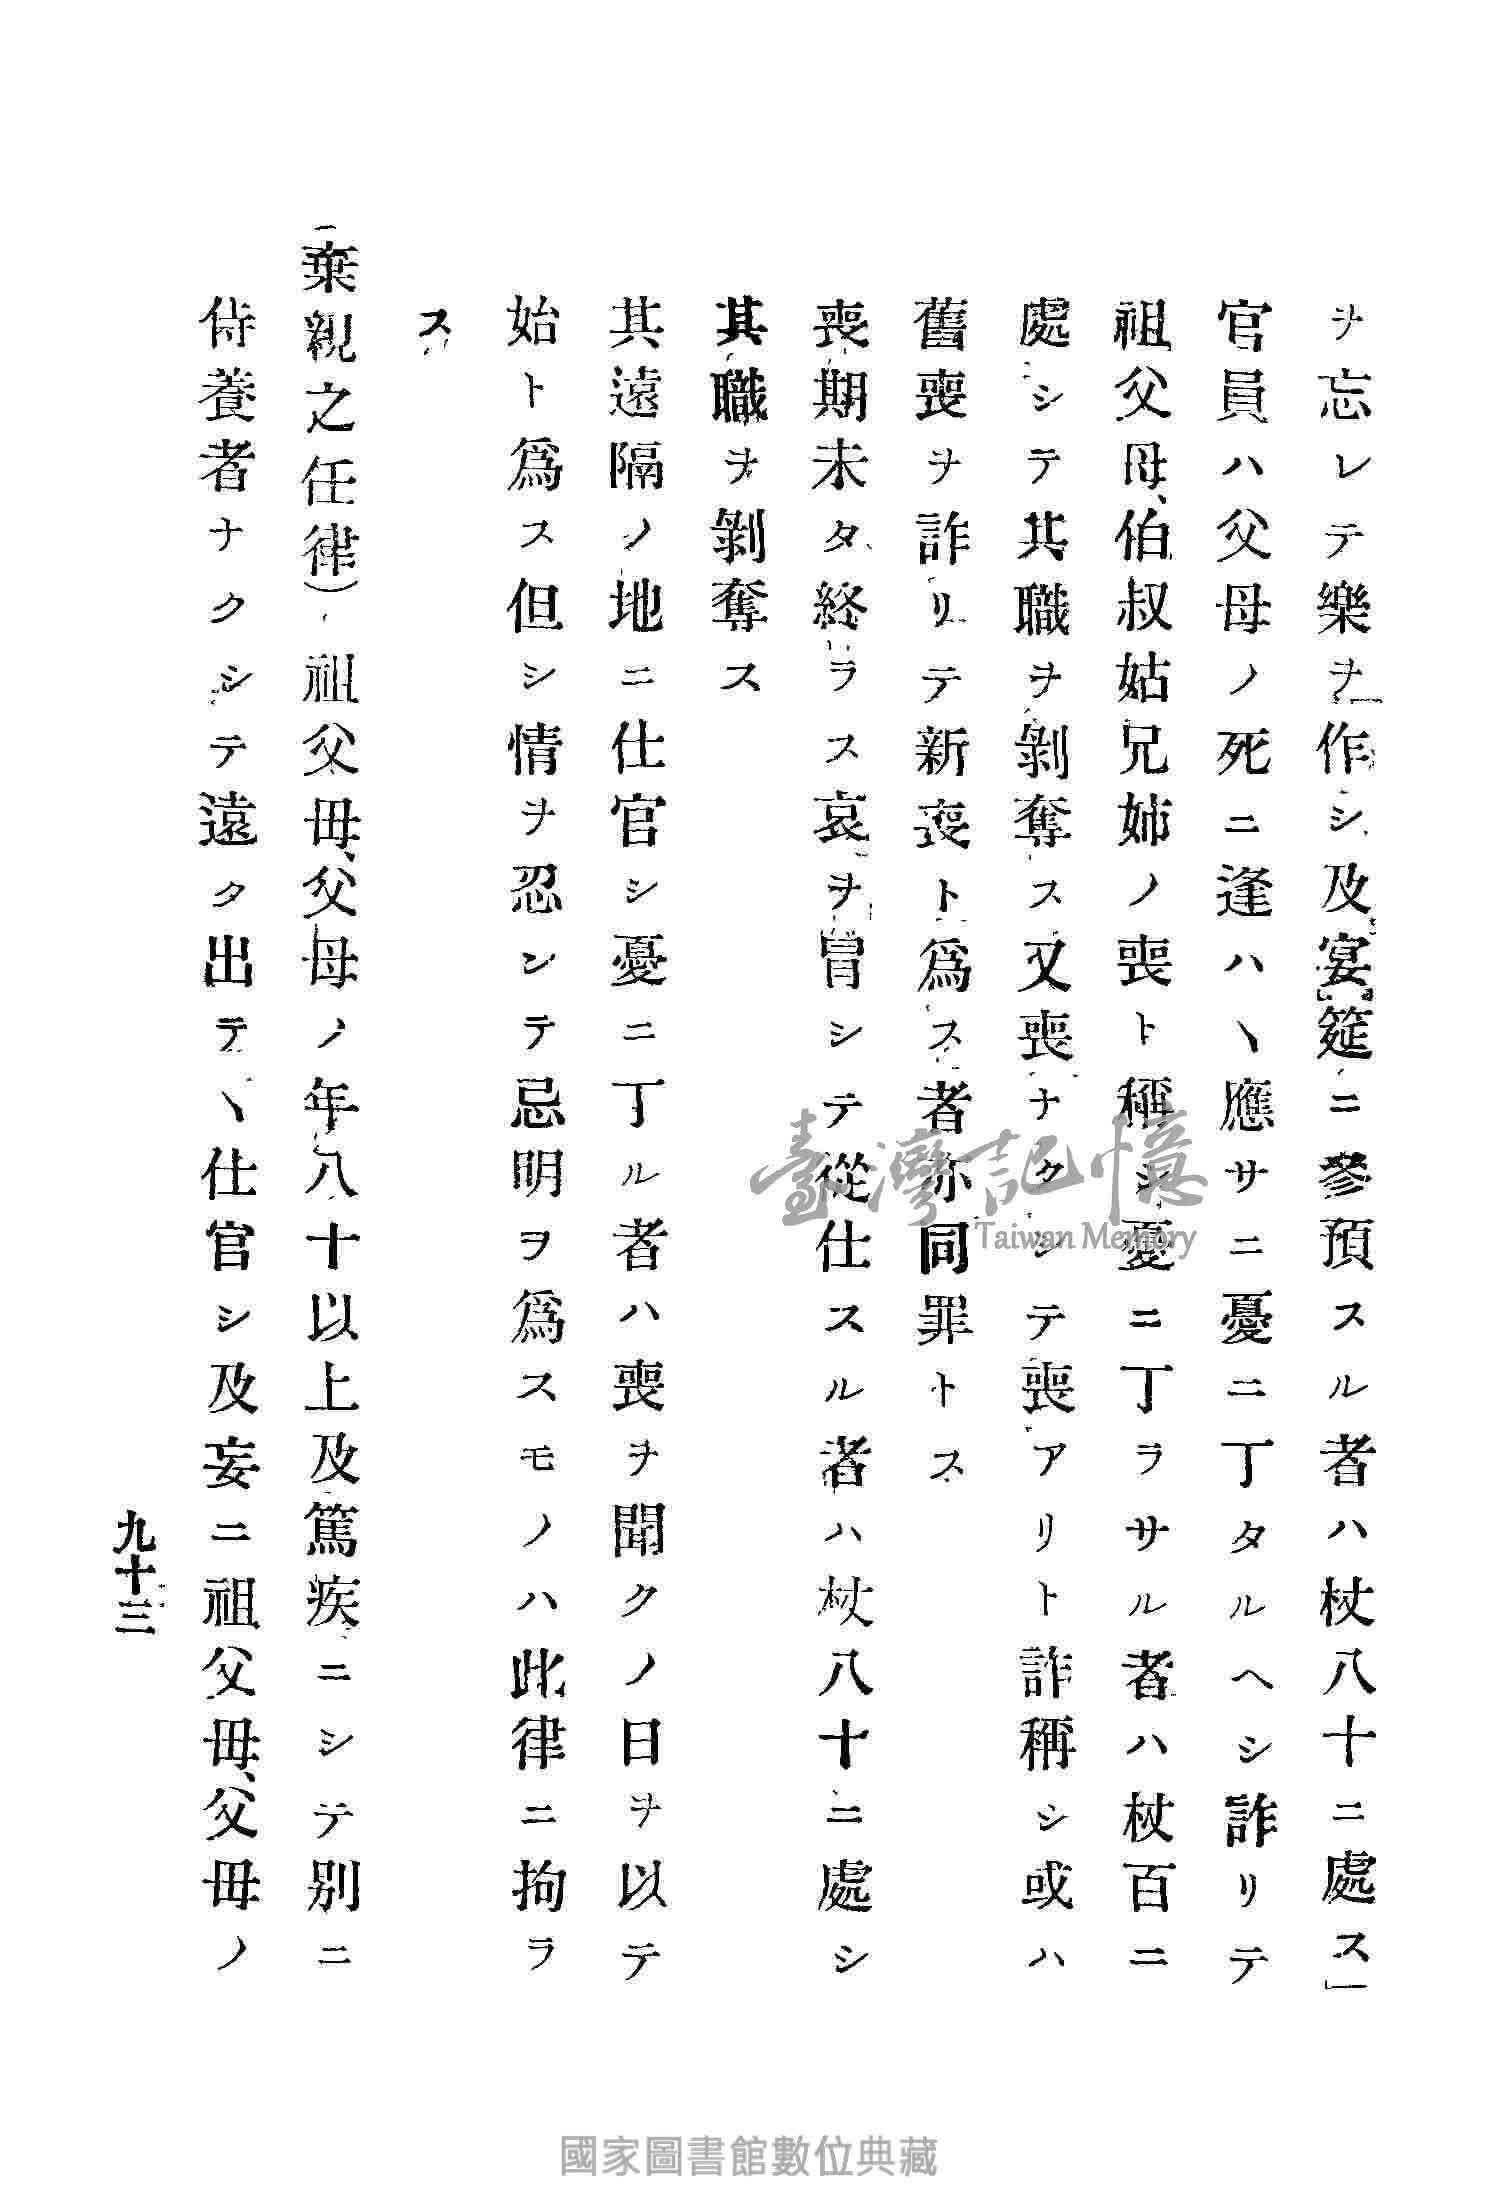 ヲ忘レテ樂ヲ作シ及宴筵ニ參預スル者ハ杖八十ニ處ス
官員ハ父母ノ死ニ逢ハヽ應サニ憂ニ丁タルヘシ詐リテ
祖父母、伯叔姑兄姉ノ喪ト稱シ憂ニ丁ラサル者ハ杖百ニ
處シテ其職ヲ剝奪ス又喪ナクシテ喪アリト詐稱シ或ハ
舊喪ヲ詐リテ新喪ト爲ス者亦同罪トス
喪期未タ終ラス哀ヲ冒シテ從仕スル者ハ杖八十ニ處シ
其職ヲ剝奪ス
其遠隔ノ地ニ仕官シ憂ニ丁ル者ハ喪ヲ聞クノ日ヲ以テ
始ト爲ス但シ情ヲ忍ンテ忌明ヲ爲スモノハ此律ニ拘ラ
ス
(棄親之任律)祖父母、父母ノ年八十以上及篤疾ニシテ別ニ
侍養者ナクシテ遠タ出テヽ仕官シ及妄ニ祖父母、父母ノ
九十三
臺灣記憶
Taiwan Memory
國家圖書館數位典藏